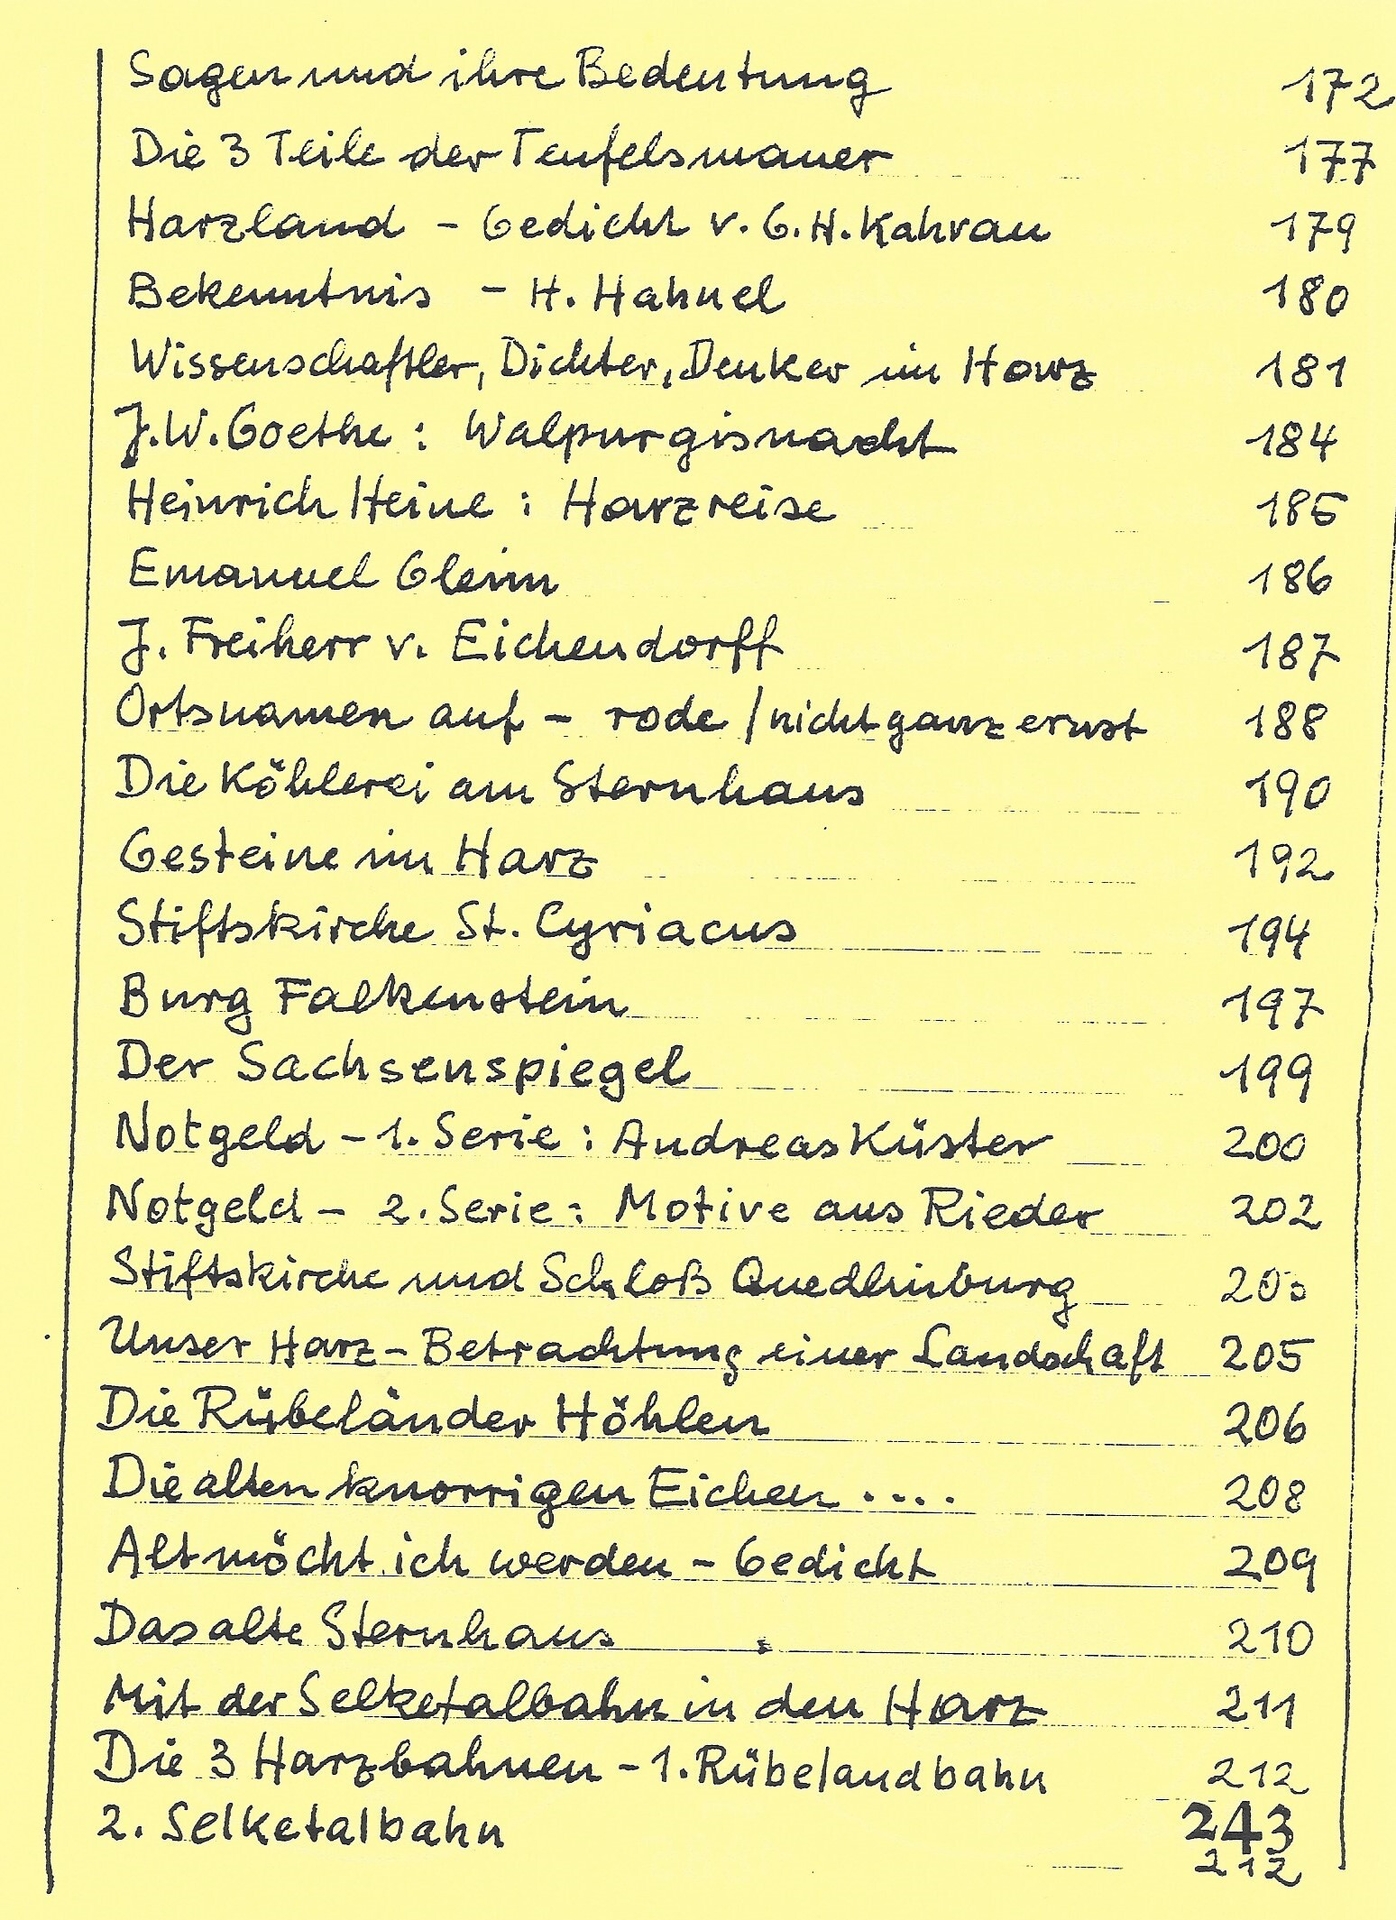 Sagen und ihre Bedeutung 172
Die 3 Teile der Teufelsmauer 177
Harzland - Gedicht v. G.H. Kahrau 179
Bekenntnis - H. Hahnel 180
Wissenschaftler, Dichter, Denker im Harz 181
J.W. Goethe: Walpurgisnacht 184
Heinrich Heine: Harzreise 185
Emanuel Gleim 186
J. Freiherr v. Eichendorff 187
Ortsnamen auf - rode / nicht ganz ernst 188
Die Köhlerei am Sternhaus 190
Gesteine im Harz 192
Stiftskirche St. Cyriacus 194
Burg Falkenstein 197
Der Sachsenspiegel 199
Notgeld - 1. Serie: Andreas Küster 200
Notgeld - 2. Serie: Motive aus Rieder 202
Stiftskirche und Schloß Quedlinburg
Unser Harz - Betrachtung einer Landschaft 205
Die Rübeländer Höhlen 206
Die alten knorrigen Eichen .... 208
Alt möcht ich werden - Gedicht 209
Das alte Sternhaus 210
Mit der Selketalbahn in den Harz 211
Die 3 Harzbahnen - 1. Rübelandbahn 212
2. Selketalbahn 243
212